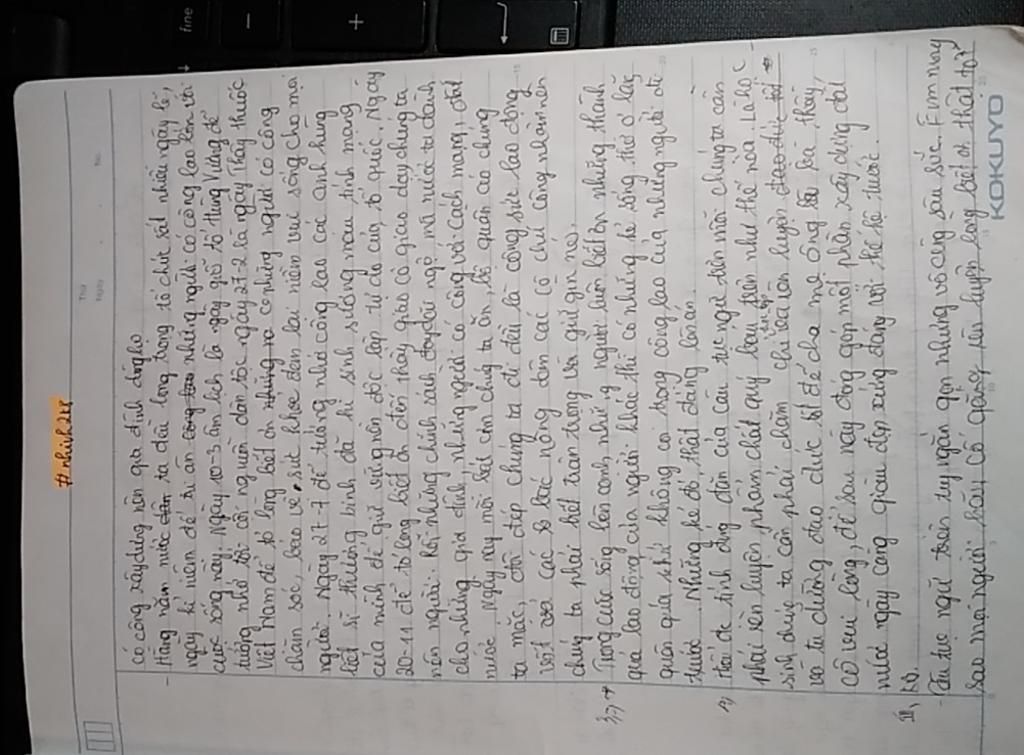 #nhinh248
Thứ
Ngày
No.
có công xây dựng nên gia đình dòng họ
- Hằng năm nước ta đều long trọng tổ chức rất nhiều ngày lễ,
ngày kỉ niệm để tri ân công lao những người có công lao lớn với
cuộc sống này. Ngày 10-3 âm lịch là ngày giỗ tổ Hùng Vương để
tưởng nhớ tới cội nguồn dân tộc ngày 27-2 là ngày Thầy thuốc
Việt Nam để tỏ lòng biết ơn những người có công
chăm sóc, bảo vệ sức khỏe đem lại niềm vui sống cho mọi
người. Ngày 27-7 để tưởng nhớ công lao các anh hùng
liệt sĩ thương binh đã hi sinh xương máu tính mạng
của mình để giữ vững nền độc lập tự do của tổ quốc. Ngày
20-11 để tỏ lòng biết ơn đến thầy giáo cô giáo dạy chúng ta
nên người. Rồi những chính sách đãi ngộ mà nước ta dành
cho những gia đình, những người có công với cách mạng, đất
nước. Ngày nay mỗi bát cơm chúng ta ăn, bộ quần áo chúng
ta mặc, đôi dép chúng ta đi đều là công sức lao động
vất vả của các bác nông dân các cô chú công nhân nên
chúng ta phải biết trân trọng và giữ gìn nó.
Trong cuộc sống bên cạnh những người luôn biết ơn những thành
quả lao động của người khác thì có những kẻ sống thờ ơ lãng
quên quá khứ không coi trọng công lao của những người đi
trước. Những kẻ đó, thật đáng lên án.
Thấy được tính đúng đắn của câu tục ngữ trên mỗi chúng ta cần
phải rèn luyện phẩm chất quý báu trên như thế nào. Là học
sinh chúng ta cần phải chăm chỉ học tập rèn luyện đạo đức tốt
và tu dưỡng đạo đức tốt để cha mẹ ông bà, thầy
cô vui lòng, để sau này đóng góp một phần xây dựng đất
nước ngày càng giàu đẹp xứng đáng với thế hệ trước.
III, KB.
- Câu tục ngữ trên tuy ngắn gọn nhưng vô cùng sâu sắc. Em mong
sao mọi người hãy cố gắng rèn luyện lòng biết ơn thật tốt
KOKUYO